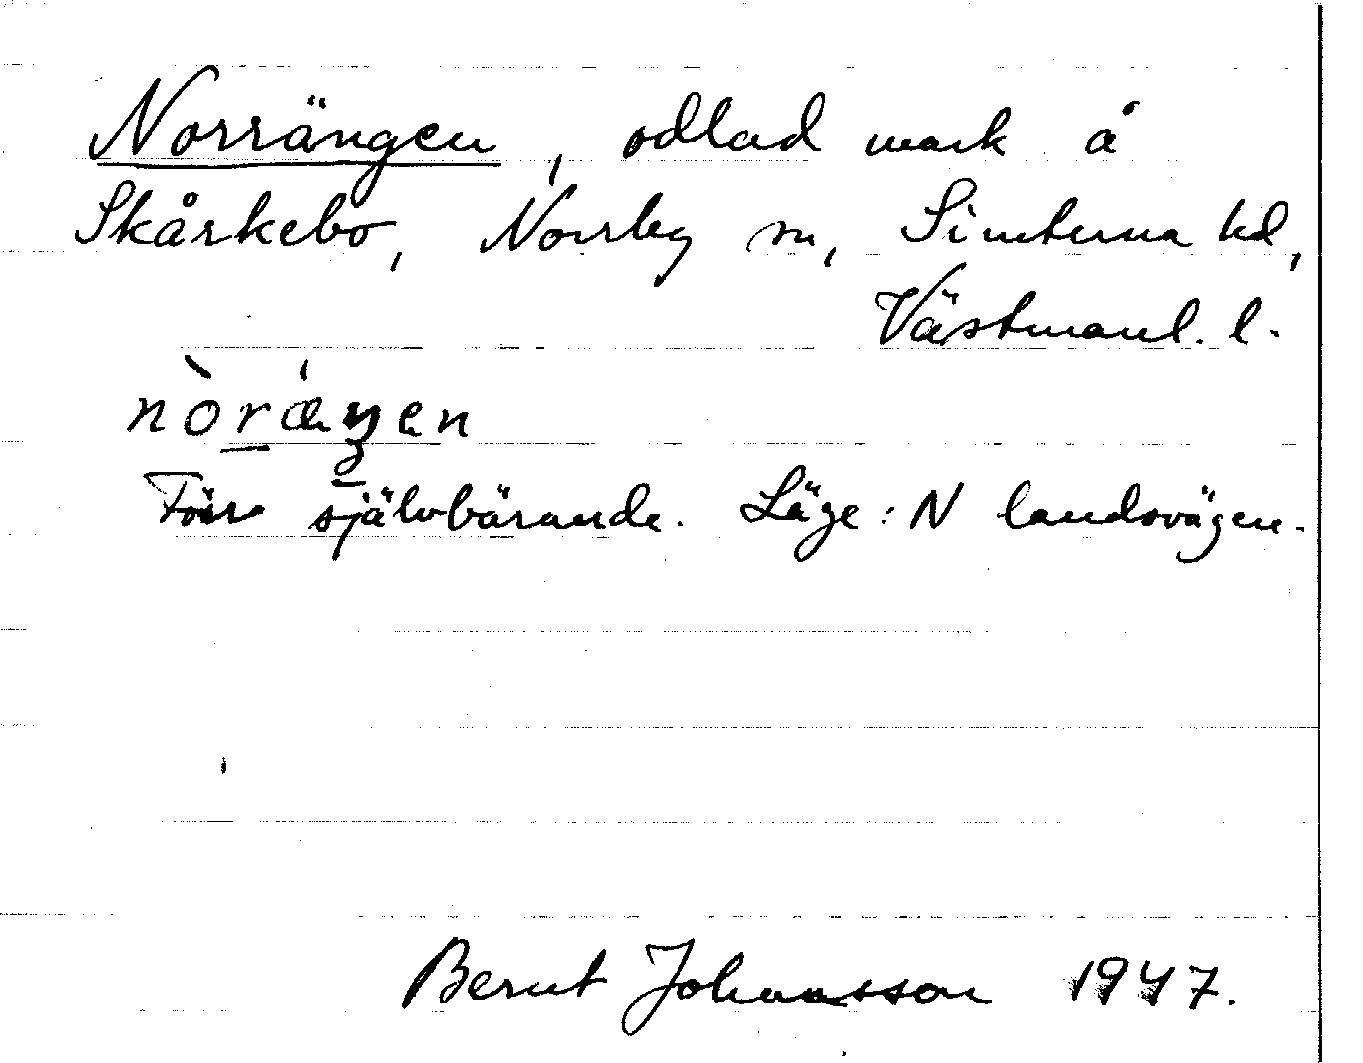 Norrängen, odlad mark å
Skårkebo, Norrby sn, Simtuna hd,
Västmanl. l.
nòræ̍ŋen
självbärande. Läge: N landsvägen.
Bernt Johansson 1947.